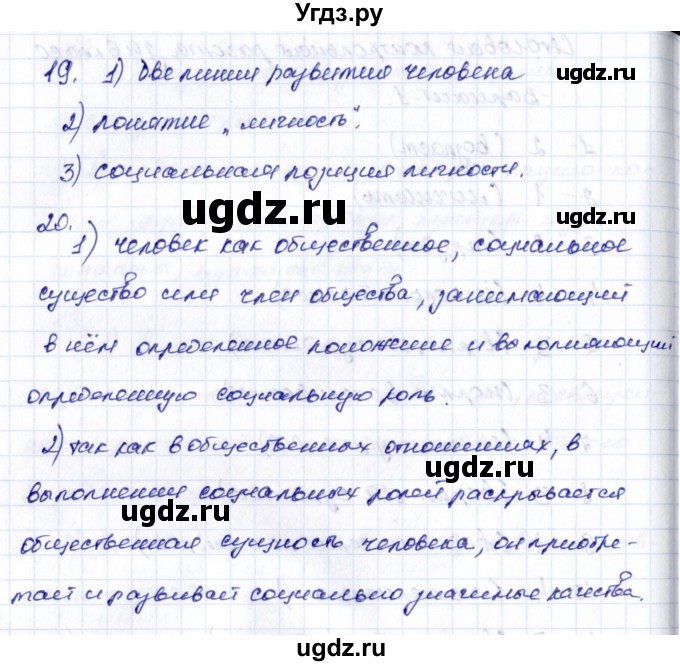 Угдз.ру
19. 1) две линии развития человека
ugdz.ru
2) понятие „личность".
3) социальная позиция личности.
ugdz.ru
ugdz.ru
20.
1) человек как общественное, социальное
существо или член общества, занимающий
ugdz.ru
в нём определенное положение и выполняющий
ugdz.ru
определенную социальную роль.
2) так как в общественных отношениях, в
ugdz.ru
выполнении социальных ролей раскрывается
ugdz.ru
общественная сущность человека, он приобре-
тает и развивает социально значимые качества.
ugdz.ru